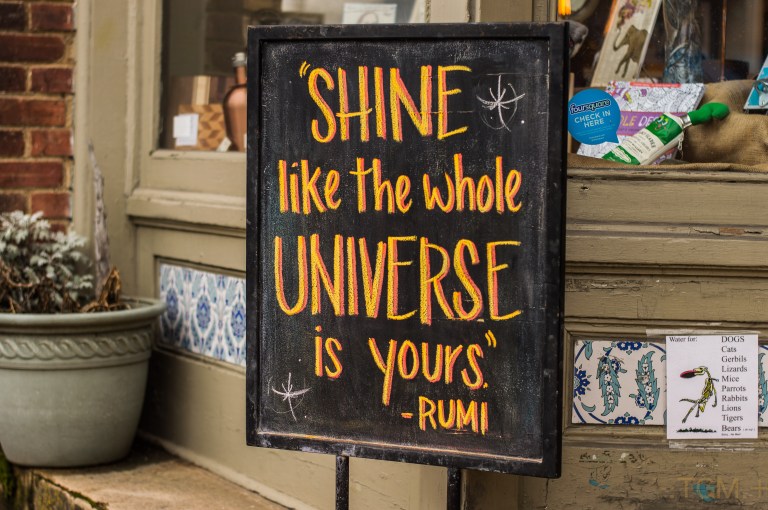 "SHINE
like the whole
UNIVERSE
is yours."
-RUMI
foursquare
CHECK IN
HERE
Water for:
DOGS
Cats
Gerbils
Lizards
Mice
Parrots
Rabbits
Lions
Tigers
Bears